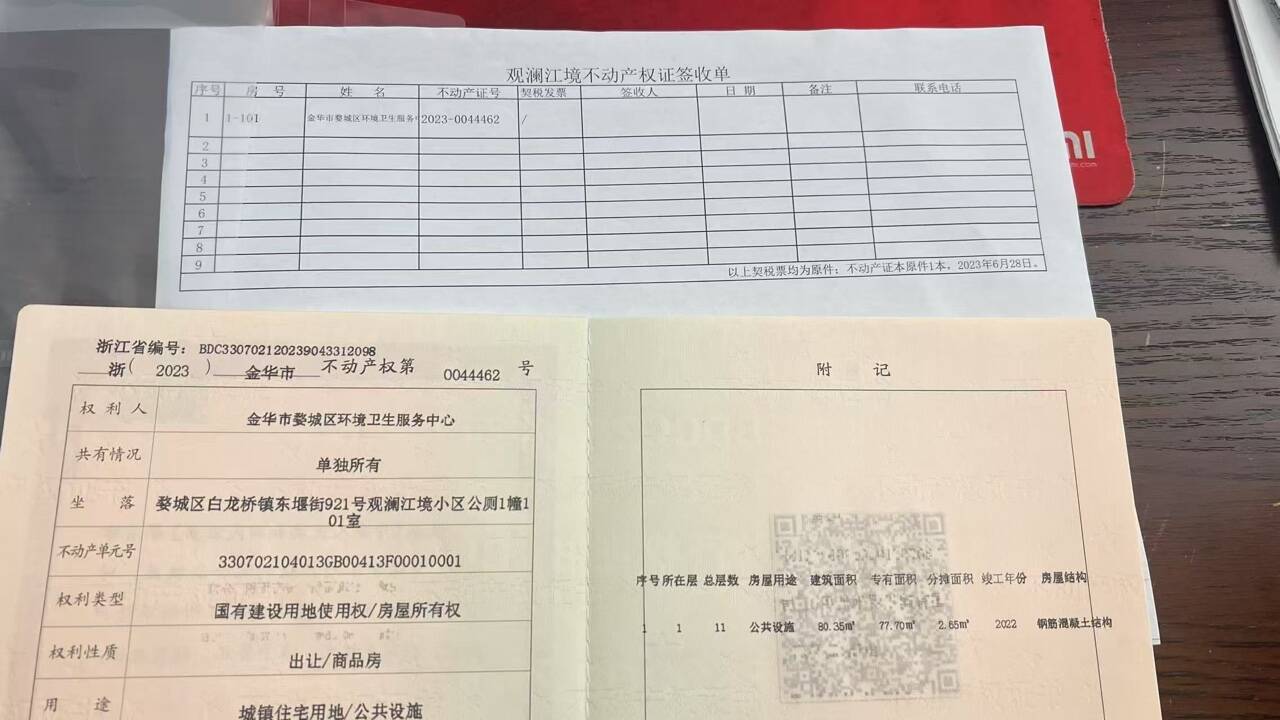 观澜江境不动产权证签收单
序号 房 号 姓 名 不动产证号 契税发票 签收人 日 期 备注 联系电话
1 1-101 金华市婺城区环境卫生服务 2023-0044462 /
2
3
4
5
6
7
8
9
以上契税票均为原件；不动产证本原件1本，2023年6月28日。
mi
mi.com
浙江省编号： BDC330702120239043312098
浙( 2023 ) 金华市 不动产权第 0044462 号
权利人 金华市婺城区环境卫生服务中心
共有情况 单独所有
坐 落 婺城区白龙桥镇东堰街921号观澜江境小区公厕1幢1
01室
不动产单元号 330702104013GB00413F00010001
权利类型 国有建设用地使用权/房屋所有权
权利性质 出让/商品房
用 途 城镇住宅用地/公共设施
附 记
序号 所在层 总层数 房屋用途 建筑面积 专有面积 分摊面积 竣工年份 房屋结构
1 1 11 公共设施 80.35㎡ 77.70㎡ 2.65㎡ 2022 钢筋混凝土结构